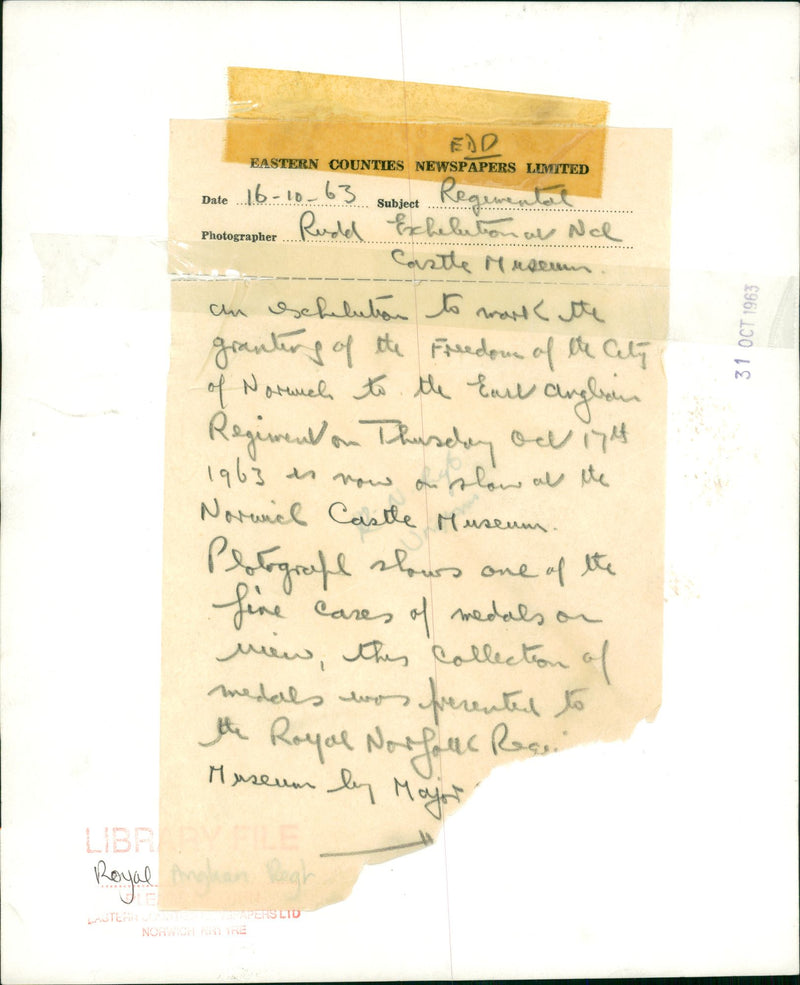 EDD
EASTERN COUNTIES NEWSPAPERS LIMITED
Date 16-10-63 Subject Regimental
Photographer Rudd Exhibition at Ncl
Castle Museum.
an exhibition to mark the
granting of the Freedom of the City
of Norwich to the East Anglian
Regiment on Thursday Oct 17th
1963 is now on show at the
Norwich Castle Museum.
Photograph shows one of the
five cases of medals on
view, this collection of
medals was presented to
the Royal Norfolk Regi
Museum by Major
31 OCT 1963
LIBRARY FILE
Royal Anglian Regt
EASTERN COUNTIES NEWSPAPERS LTD
NORWICH